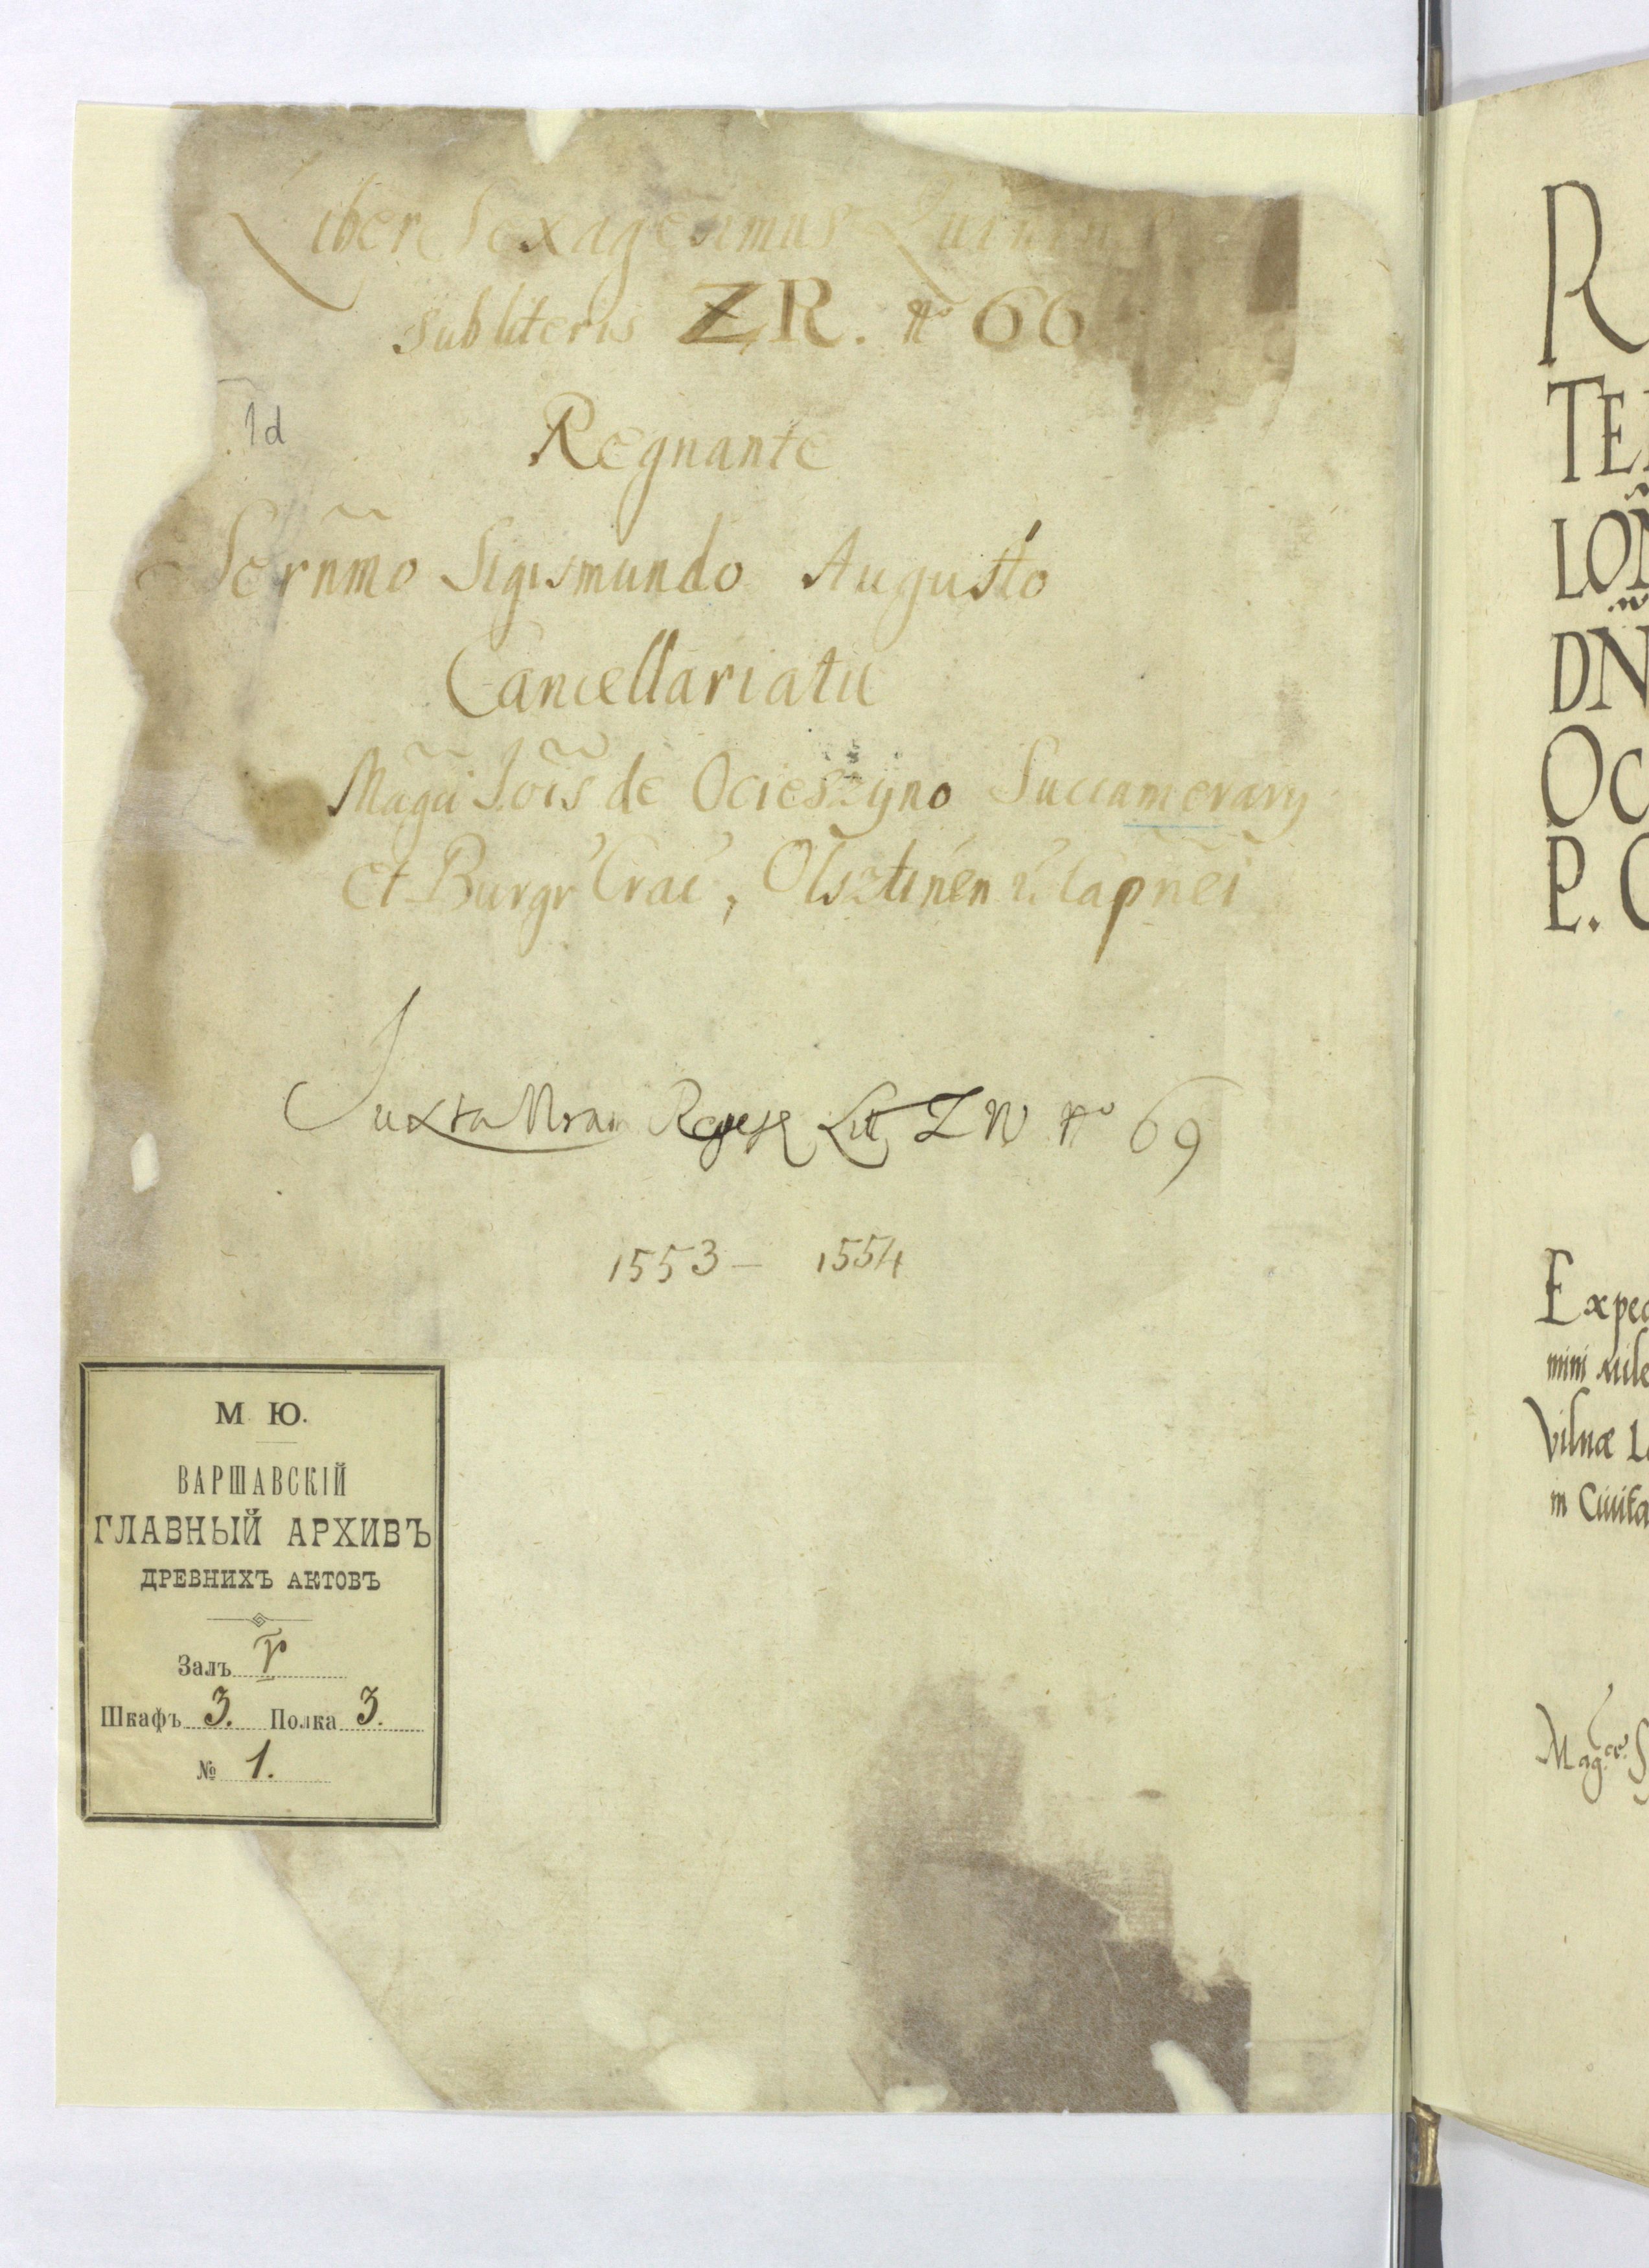 Liber Sexagesimus Quint
Sub literis ZR. No 66
1d
Regnante
Serñmo Sigismundo Augusto
Cancellariatu
Magñi Joīs de Ocieszyno Succamerarij
et Burgr Crac, Olsztinen Capñei
Juxta Regestr Lit ZW No 69
1553 – 1554
М Ю.
ВАРШАВСКІЙ
ГЛАВНЫЙ АРХИВЪ
ДРЕВНИХЪ АКТОВЪ
Залъ
Шкафъ 3. Полка 3.
№ 1.
R
TE
LOÑ
DN
OC
P. C
Exped
mini Mile
Vilnæ
in Civita